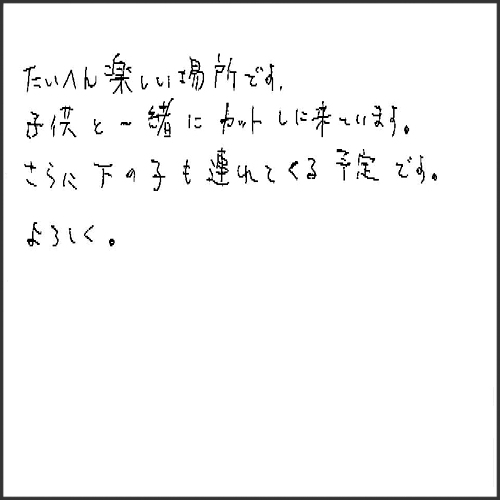 たいへん楽しい場所です。
子供と一緒にカットしに来ています。
さらに下の子も連れてくる予定です。
よろしく。